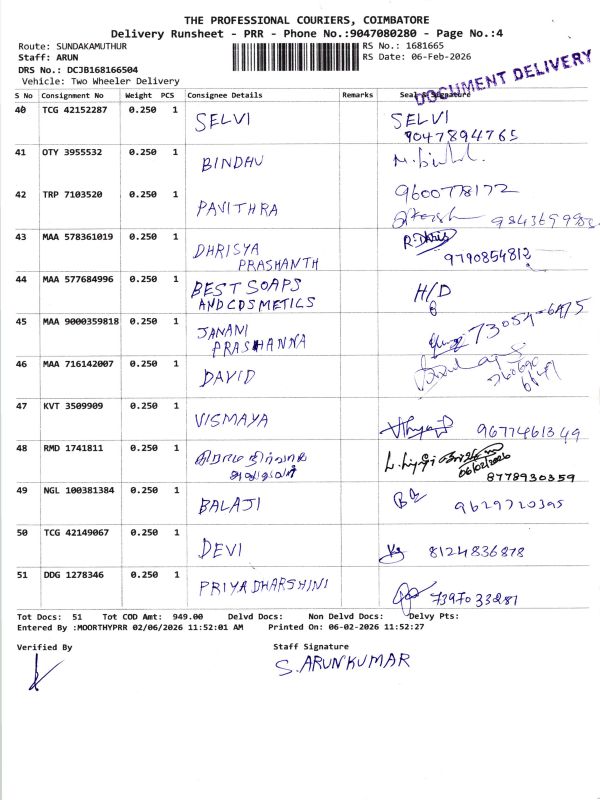 THE PROFESSIONAL COURIERS, COIMBATORE
Delivery Runsheet - PRR - Phone No.:9047080280 - Page No.:4
Route: SUNDAKAMUTHUR RS No.: 1681665
Staff: ARUN RS Date: 06-Feb-2026
DRS No.: DCJB168166504
Vehicle: Two Wheeler Delivery
DOCUMENT DELIVERY
S No Consignment No Weight PCS Consignee Details Remarks Seal & Signature
40 TCG 42152287 0.250 1 SELVI SELVI
9047894765
41 OTY 3955532 0.250 1 BINDHU
42 TRP 7103520 0.250 1 PAVITHRA 9600778172
43 MAA 578361019 0.250 1 DHRISYA
PRASHANTH 9790854812
44 MAA 577684996 0.250 1 BEST SOAPS H/D
AND COSMETICS
45 MAA 9000359818 0.250 1 JANANI 73054-6475
PRASHANNA
46 MAA 716142007 0.250 1 DAVID
47 KVT 3509909 0.250 1 VISMAYA 9677461349
48 RMD 1741811 0.250 1 கிராம நிர்வாக
அலுவலர் 06/02/2026
8778930359
49 NGL 100381384 0.250 1 BALAJI 9629720395
50 TCG 42149067 0.250 1 DEVI 8124836878
51 DDG 1278346 0.250 1 PRIYADHARSHINI 7397033281
Tot Docs: 51 Tot COD Amt: 949.00 Delvd Docs: Non Delvd Docs: Delvy Pts:
Entered By :MOORTHYPRR 02/06/2026 11:52:01 AM Printed On: 06-02-2026 11:52:27
Verified By Staff Signature
S. ARUNKUMAR